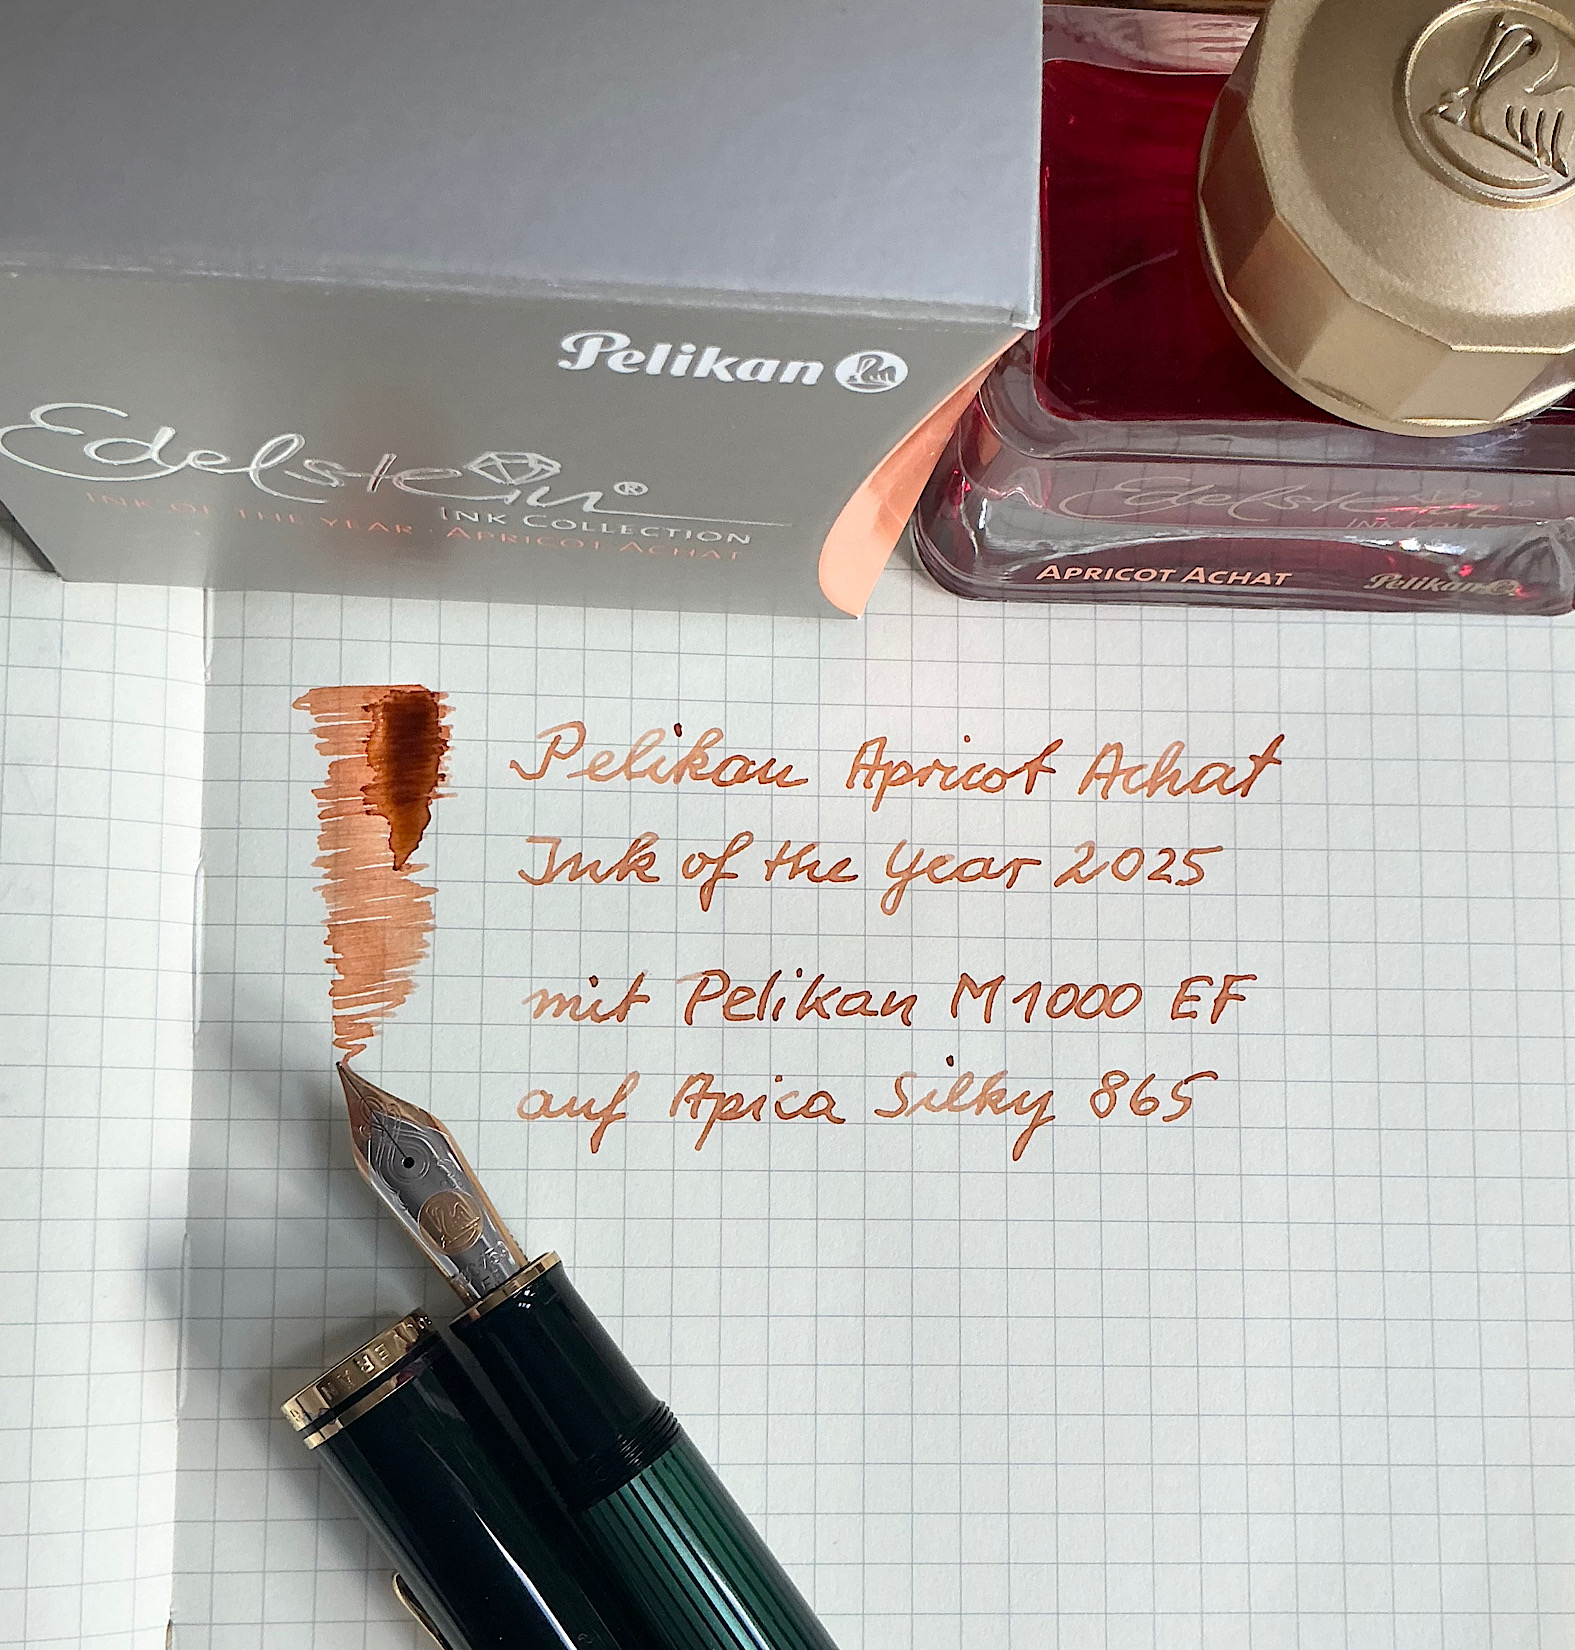 Pelikan
Edelstein®
INK COLLECTION
INK OF THE YEAR · APRICOT ACHAT
Edelstein
INK COLLE
APRICOT ACHAT Pelikan
Pelikan Apricot Achat
Ink of the Year 2025
mit Pelikan M1000 EF
auf Apica Silky 865
SOUVERÄN